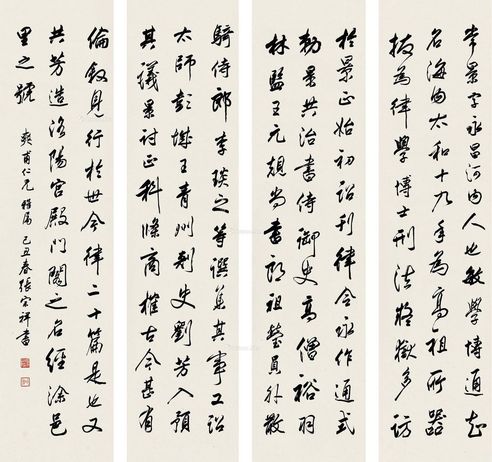 常景字永昌河內人也敏學博通知
名海內太和十九年為高祖所器
拔為律學博士刑法疑獄多訪
於景正始初詔刊律令永作通式
勑景共治書侍御史高僧裕羽
林監王元龜尚書郎祖瑩員外散
騎侍郎李琰之等譔集其事又詔
太師彭城王青州刺史劉芳入預
其議景討正科條商榷古今甚有
倫敘見行於世今律二十篇是也又
共芳造洛陽宮殿門閣之名經涂邑
里之號
爽甫仁兄雅屬 己丑春張宗祥書